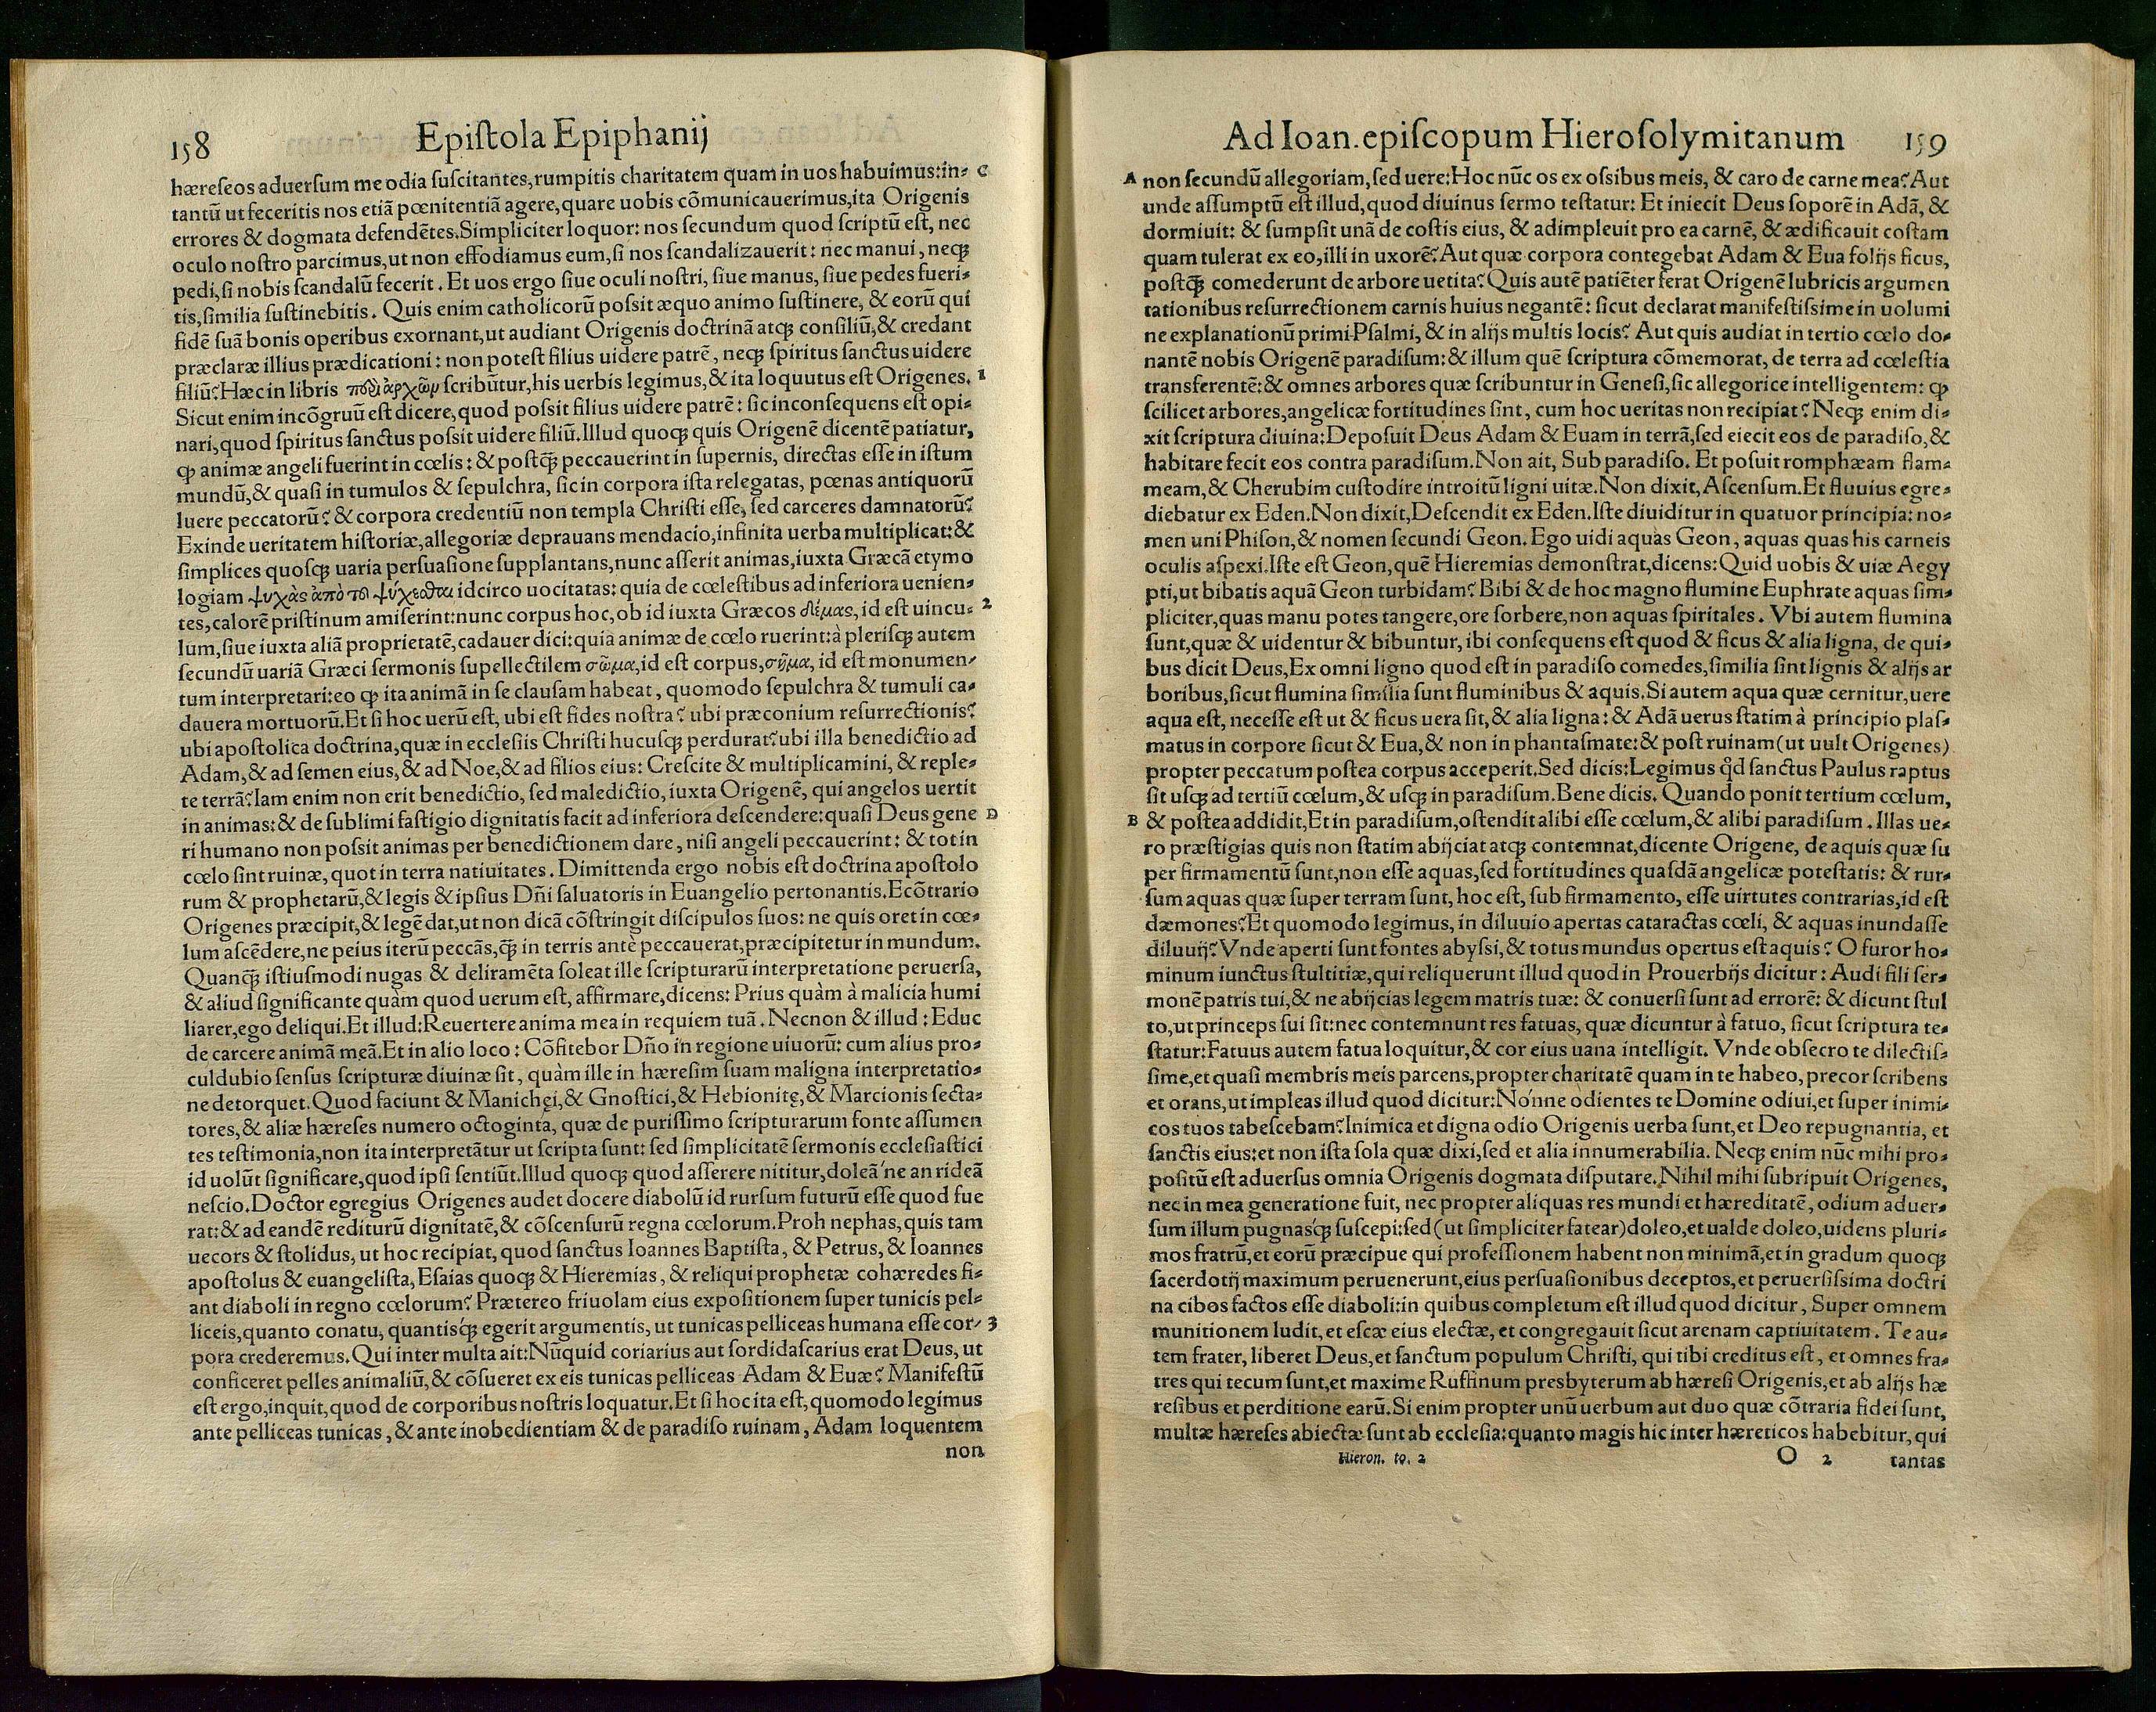 158
Epiſtola Epiphanij
hæreſeos aduerſum me odia ſuſcitantes, rumpitis charitatem quam in uos habuimus: in- C
tantũ ut feceritis nos etiã pœnitentiã agere, quare uobis cõmunicauerimus, ita Origenis
errores & dogmata defendẽtes. Simpliciter loquor: nos ſecundum quod ſcriptũ eſt, nec
oculo noſtro parcimus, ut non effodiamus eum, ſi nos ſcandalizauerit: nec manui, neqȝ
pedi, ſi nobis ſcandalũ fecerit. Et uos ergo ſiue oculi noſtri, ſiue manus, ſiue pedes fueri-
tis, ſimilia ſuſtinebitis. Quis enim catholicorũ poſsit æquo animo ſuſtinere, & eorũ qui
fidẽ ſuã bonis operibus exornant, ut audiant Origenis doctrinã atqȝ conſiliũ, & credant
præclaræ illius prædicationi: non poteſt filius uidere patrẽ, neqȝ ſpiritus ſanctus uidere
filiũ? Hæc in libris πεϱὶ ἀρχῶν ſcribũtur, his uerbis legimus, & ita loquutus eſt Origenes. 1
Sicut enim incõgruũ eſt dicere, quod poſsit filius uidere patrẽ: ſic inconſequens eſt opi-
nari, quod ſpiritus ſanctus poſsit uidere filiũ. Illud quoqȝ quis Origenẽ dicentẽ patiatur,
ꝙ animæ angeli fuerint in cœlis: & poſtꝗ̃ peccauerint in ſupernis, directas eſſe in iſtum
mundũ, & quaſi in tumulos & ſepulchra, ſic in corpora iſta relegatas, pœnas antiquorũ
luere peccatorũ? & corpora credentiũ non templa Chriſti eſſe, ſed carceres damnatorũ?
Exinde ueritatem hiſtoriæ, allegoriæ deprauans mendacio, infinita uerba multiplicat: &
ſimplices quoſqȝ uaria perſuaſione ſupplantans, nunc aſſerit animas, iuxta Græcã etymo
logiam ψυχὰς ἀπὸ τοῦ ψύχεσθαι idcirco uocitatas: quia de cœleſtibus ad inferiora uenien-
tes, calorẽ priſtinum amiſerint: nunc corpus hoc, ob id iuxta Græcos δέμας, id eſt uincu- 2
lum, ſiue iuxta aliã proprietatẽ, cadauer dici: quia animæ de cœlo ruerint: à pleriſqȝ autem
ſecundũ uariã Græci ſermonis ſupellectilem σῶμα, id eſt corpus, σῆμα, id eſt monumen-
tum interpretari: eo ꝙ ita animã in ſe clauſam habeat, quomodo ſepulchra & tumuli ca-
dauera mortuorũ. Et ſi hoc uerũ eſt, ubi eſt fides noſtra? ubi præconium reſurrectionis?
ubi apoſtolica doctrina, quæ in eccleſiis Chriſti hucuſqȝ perdurat? ubi illa benedictio ad
Adam, & ad ſemen eius, & ad Noe, & ad filios eius: Creſcite & multiplicamini, & reple-
te terrã? Iam enim non erit benedictio, ſed maledictio, iuxta Origenẽ, qui angelos uertit
in animas: & de ſublimi faſtigio dignitatis facit ad inferiora deſcendere: quaſi Deus gene D
ri humano non poſsit animas per benedictionem dare, niſi angeli peccauerint: & tot in
cœlo ſint ruinæ, quot in terra natiuitates. Dimittenda ergo nobis eſt doctrina apoſtolo
rum & prophetarũ, & legis & ipſius Dñi ſaluatoris in Euangelio pertonantis. Ecõtrario
Origenes præcipit, & legẽ dat, ut non dicã cõſtringit diſcipulos ſuos: ne quis oret in cœ-
lum aſcẽdere, ne peius iterũ peccãs, ꝗ̃ in terris antè peccauerat, præcipitetur in mundum.
Quanꝗ̃ iſtiuſmodi nugas & deliramẽta ſoleat ille ſcripturarũ interpretatione peruerſa,
& aliud ſignificante quàm quod uerum eſt, affirmare, dicens: Prius quàm à malicia humi
liarer, ego deliqui. Et illud: Reuertere anima mea in requiem tuã. Necnon & illud: Educ
de carcere animã meã. Et in alio loco: Cõfitebor Dño in regione uiuorũ: cum alius pro-
culdubio ſenſus ſcripturæ diuinæ ſit, quàm ille in hæreſim ſuam maligna interpretatio-
ne detorquet. Quod faciunt & Manichęi, & Gnoſtici, & Hebionitę, & Marcionis ſecta-
tores, & aliæ hæreſes numero octoginta, quæ de puriſſimo ſcripturarum fonte aſſumen
tes teſtimonia, non ita interpretãtur ut ſcripta ſunt: ſed ſimplicitatẽ ſermonis eccleſiaſtici
id uolũt ſignificare, quod ipſi ſentiũt. Illud quoqȝ quod aſſerere nititur, doleã'ne an rideã
neſcio. Doctor egregius Origenes audet docere diabolũ id rurſum futurũ eſſe quod fue
rat: & ad eandẽ rediturũ dignitatẽ, & cõſcenſurũ regna cœlorum. Proh nephas, quis tam
uecors & ſtolidus, ut hoc recipiat, quod ſanctus Ioannes Baptiſta, & Petrus, & Ioannes
apoſtolus & euangeliſta, Eſaias quoqȝ & Hieremias, & reliqui prophetæ cohæredes fi-
ant diaboli in regno cœlorum? Prætereo friuolam eius expoſitionem ſuper tunicis pel-
liceis, quanto conatu, quantiſqȝ egerit argumentis, ut tunicas pelliceas humana eſſe cor- 3
pora crederemus. Qui inter multa ait: Nũquid coriarius aut ſordidaſcarius erat Deus, ut
conficeret pelles animaliũ, & cõſueret ex eis tunicas pelliceas Adam & Euæ? Manifeſtũ
eſt ergo, inquit, quod de corporibus noſtris loquatur. Et ſi hoc ita eſt, quomodo legimus
ante pelliceas tunicas, & ante inobedientiam & de paradiſo ruinam, Adam loquentem
non
Ad Ioan. epiſcopum Hieroſolymitanum
159
A non ſecundũ allegoriam, ſed uere: Hoc nũc os ex oſsibus meis, & caro de carne mea? Aut
unde aſſumptũ eſt illud, quod diuinus ſermo teſtatur: Et iniecit Deus ſoporẽ in Adã, &
dormiuit: & ſumpſit unã de coſtis eius, & adimpleuit pro ea carnẽ, & ædificauit coſtam
quam tulerat ex eo, illi in uxorẽ? Aut quæ corpora contegebat Adam & Eua folijs ficus,
poſtꝗ̃ comederunt de arbore uetita? Quis autẽ patiẽter ferat Origenẽ lubricis argumen
tationibus reſurrectionem carnis huius negantẽ: ſicut declarat manifeſtiſsime in uolumi
ne explanationũ primi Pſalmi, & in alijs multis locis? Aut quis audiat in tertio cœlo do-
nantẽ nobis Origenẽ paradiſum: & illum quẽ ſcriptura cõmemorat, de terra ad cœleſtia
transferentẽ: & omnes arbores quæ ſcribuntur in Geneſi, ſic allegorice intelligentem: ꝙ
ſcilicet arbores, angelicæ fortitudines ſint, cum hoc ueritas non recipiat? Neqȝ enim di-
xit ſcriptura diuina: Depoſuit Deus Adam & Euam in terrã, ſed eiecit eos de paradiſo, &
habitare fecit eos contra paradiſum. Non ait, Sub paradiſo. Et poſuit romphæam flam-
meam, & Cherubim cuſtodire introitũ ligni uitæ. Non dixit, Aſcenſum. Et fluuius egre-
diebatur ex Eden. Non dixit, Deſcendit ex Eden. Iſte diuiditur in quatuor principia: no-
men uni Phiſon, & nomen ſecundi Geon. Ego uidi aquàs Geon, aquas quas his carneis
oculis aſpexi. Iſte eſt Geon, quẽ Hieremias demonſtrat, dicens: Quid uobis & uiæ Aegy
pti, ut bibatis aquã Geon turbidam? Bibi & de hoc magno flumine Euphrate aquas ſim-
pliciter, quas manu potes tangere, ore ſorbere, non aquas ſpiritales. Vbi autem flumina
ſunt, quæ & uidentur & bibuntur, ibi conſequens eſt quod & ficus & alia ligna, de qui-
bus dicit Deus, Ex omni ligno quod eſt in paradiſo comedes, ſimilia ſint lignis & alijs ar
boribus, ſicut flumina ſimilia ſunt fluminibus & aquis. Si autem aqua quæ cernitur, uere
aqua eſt, neceſſe eſt ut & ficus uera ſit, & alia ligna: & Adã uerus ſtatim à principio plaſ-
matus in corpore ſicut & Eua, & non in phantaſmate: & poſt ruinam (ut uult Origenes)
propter peccatum poſtea corpus acceperit. Sed dicis: Legimus qd̾ ſanctus Paulus raptus
ſit uſqȝ ad tertiũ cœlum, & uſqȝ in paradiſum. Bene dicis. Quando ponit tertium cœlum,
B & poſtea addidit, Et in paradiſum, oſtendit alibi eſſe cœlum, & alibi paradiſum. Illas ue-
ro præſtigias quis non ſtatim abijciat atqȝ contemnat, dicente Origene, de aquis quæ ſu
per firmamentũ ſunt, non eſſe aquas, ſed fortitudines quaſdã angelicæ poteſtatis: & rur-
ſum aquas quæ ſuper terram ſunt, hoc eſt, ſub firmamento, eſſe uirtutes contrarias, id eſt
dæmones? Et quomodo legimus, in diluuio apertas cataractas cœli, & aquas inundaſſe
diluuij? Vnde aperti ſunt fontes abyſsi, & totus mundus opertus eſt aquis? O furor ho-
minum iunctus ſtultitiæ, qui reliquerunt illud quod in Prouerbijs dicitur: Audi fili ſer-
monẽ patris tui, & ne abijcias legem matris tuæ: & conuerſi ſunt ad errorẽ: & dicunt ſtul
to, ut princeps ſui ſit: nec contemnunt res fatuas, quæ dicuntur à fatuo, ſicut ſcriptura te-
ſtatur: Fatuus autem fatua loquitur, & cor eius uana intelligit. Vnde obſecro te dilectiſ-
ſime, et quaſi membris meis parcens, propter charitatẽ quam in te habeo, precor ſcribens
et orans, ut impleas illud quod dicitur: Nónne odientes te Domine odiui, et ſuper inimi-
cos tuos tabeſcebam? Inimica et digna odio Origenis uerba ſunt, et Deo repugnantia, et
ſanctis eius: et non iſta ſola quæ dixi, ſed et alia innumerabilia. Neqȝ enim nũc mihi pro-
poſitũ eſt aduerſus omnia Origenis dogmata diſputare. Nihil mihi ſubripuit Origenes,
nec in mea generatione fuit, nec propter aliquas res mundi et hæreditatẽ, odium aduer-
ſum illum pugnaſqȝ ſuſcepi: ſed (ut ſimpliciter fatear) doleo, et ualde doleo, uidens pluri-
mos fratrũ, et eorũ præcipue qui profeſſionem habent non minimã, et in gradum quoqȝ
ſacerdotij maximum peruenerunt, eius perſuaſionibus deceptos, et peruerſiſsima doctri
na cibos factos eſſe diaboli: in quibus completum eſt illud quod dicitur, Super omnem
munitionem ludit, et eſcæ eius electæ, et congregauit ſicut arenam captiuitatem. Te au-
tem frater, liberet Deus, et ſanctum populum Chriſti, qui tibi creditus eſt, et omnes fra-
tres qui tecum ſunt, et maxime Ruffinum presbyterum ab hæreſi Origenis, et ab alijs hæ
reſibus et perditione earũ. Si enim propter unũ uerbum aut duo quæ cõtraria fidei ſunt,
multæ hæreſes abiectæ ſunt ab eccleſia: quanto magis hic inter hæreticos habebitur, qui
Hieron. to. 2 O 2 tantas